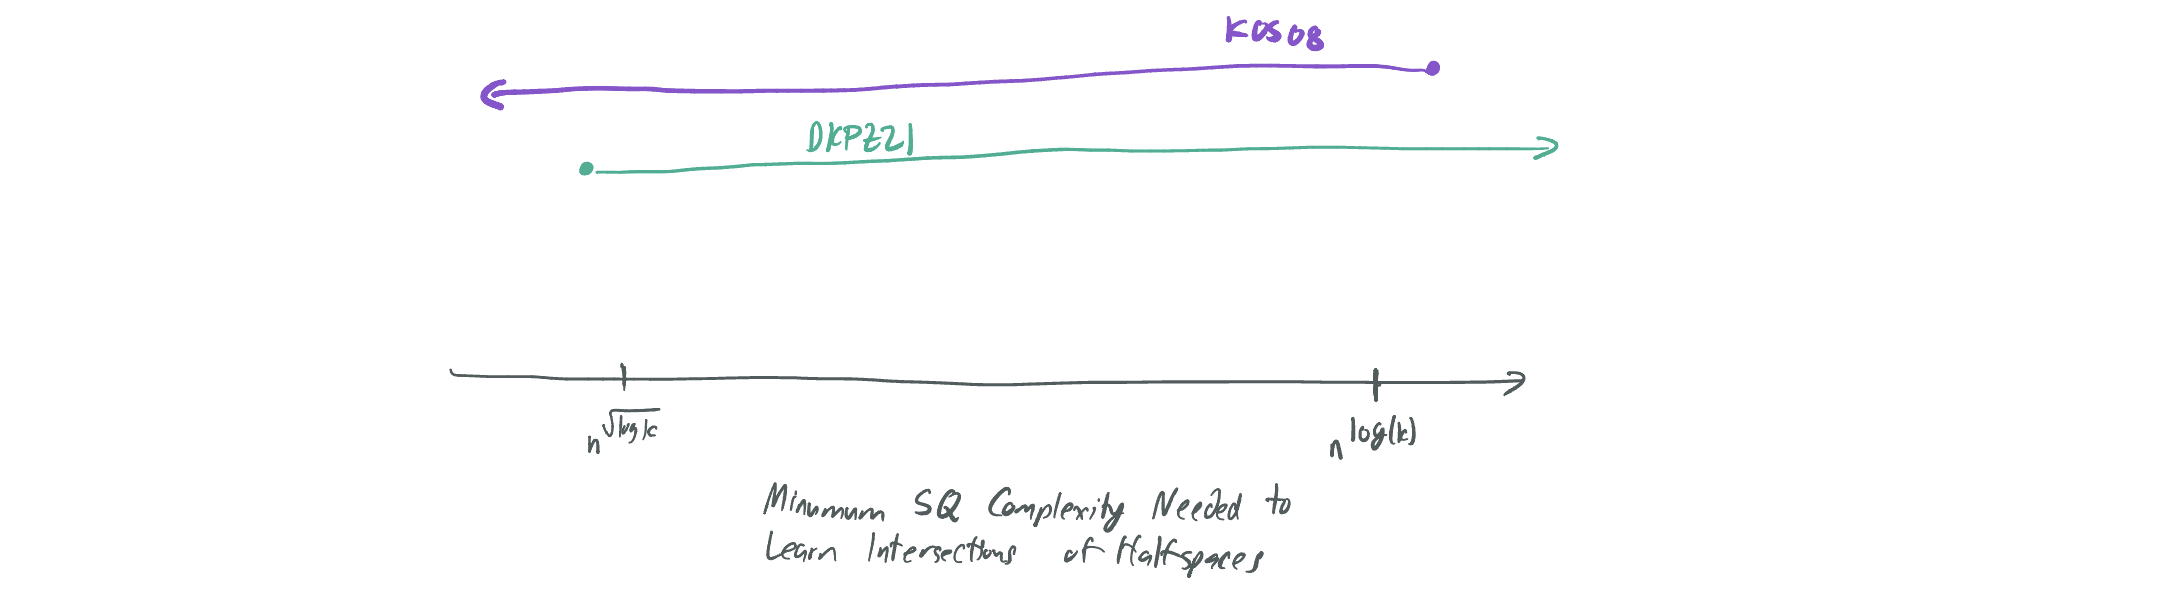 KOS08
DKPZ21
n^√log k
n^log(k)
Minumum SQ Complexity Needed to
Learn Intersections of Halfspaces